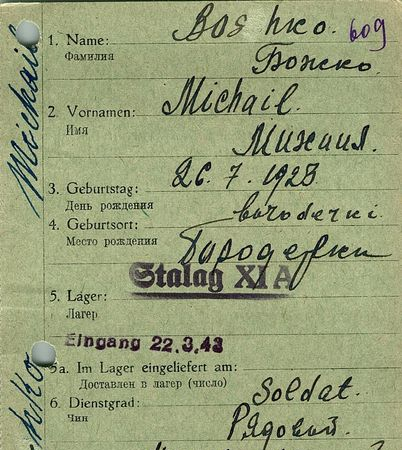 Boshko.
609
1. Name:
Фамилия
Божко.
2. Vornamen:
Michail.
Имя
Михаил.
3. Geburtstag:
26. 7. 1923
День рождения
4. Geburtsort:
Место рождения
Stalag XI A
5. Lager:
Лагер
Eingang 22.3.43
5a. Im Lager eingeliefert am:
Доставлен в лагер (число)
6. Dienstgrad:
Soldat.
Чин
Рядовой.
Michail